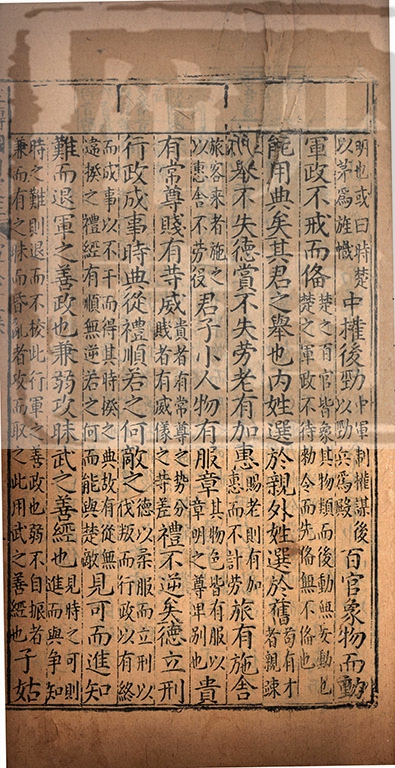 明也或曰時楚以茅爲旌幟中權後勁中軍制權謀後以勁兵爲殿百官象物而動
軍政不戒而備楚之百官皆象其物類而後動無妄動也楚之軍政不待勑令而先備無不備也
能用典矣其君之舉也内姓選於親外姓選於舊苟有才者親踈
舉不失德賞不失勞老有加惠賜老則有加惠而不計勞旅有施舍
旅客來者施之以惠舍不勞役君子小人物有服章其物色皆有服以章明之尊卑別也貴
有常尊賤有等威貴者有常尊之勢分賤者有威儀之等差禮不逆矣德立刑
行政成事時典從禮順若之何敵之德以柔服而立刑以伐叛而行政以有終
而成事以不干而得其時揆之典故有從無違揆之禮經有順無逆若之何而能與楚敵見可而進知
難而退軍之善政也兼弱攻昧武之善經也見時之可則進而與爭知
時之難則退而不校此行軍之善政也弱不自振者兼而有之昧而昏亂者攻而取之此用武之善經也子姑